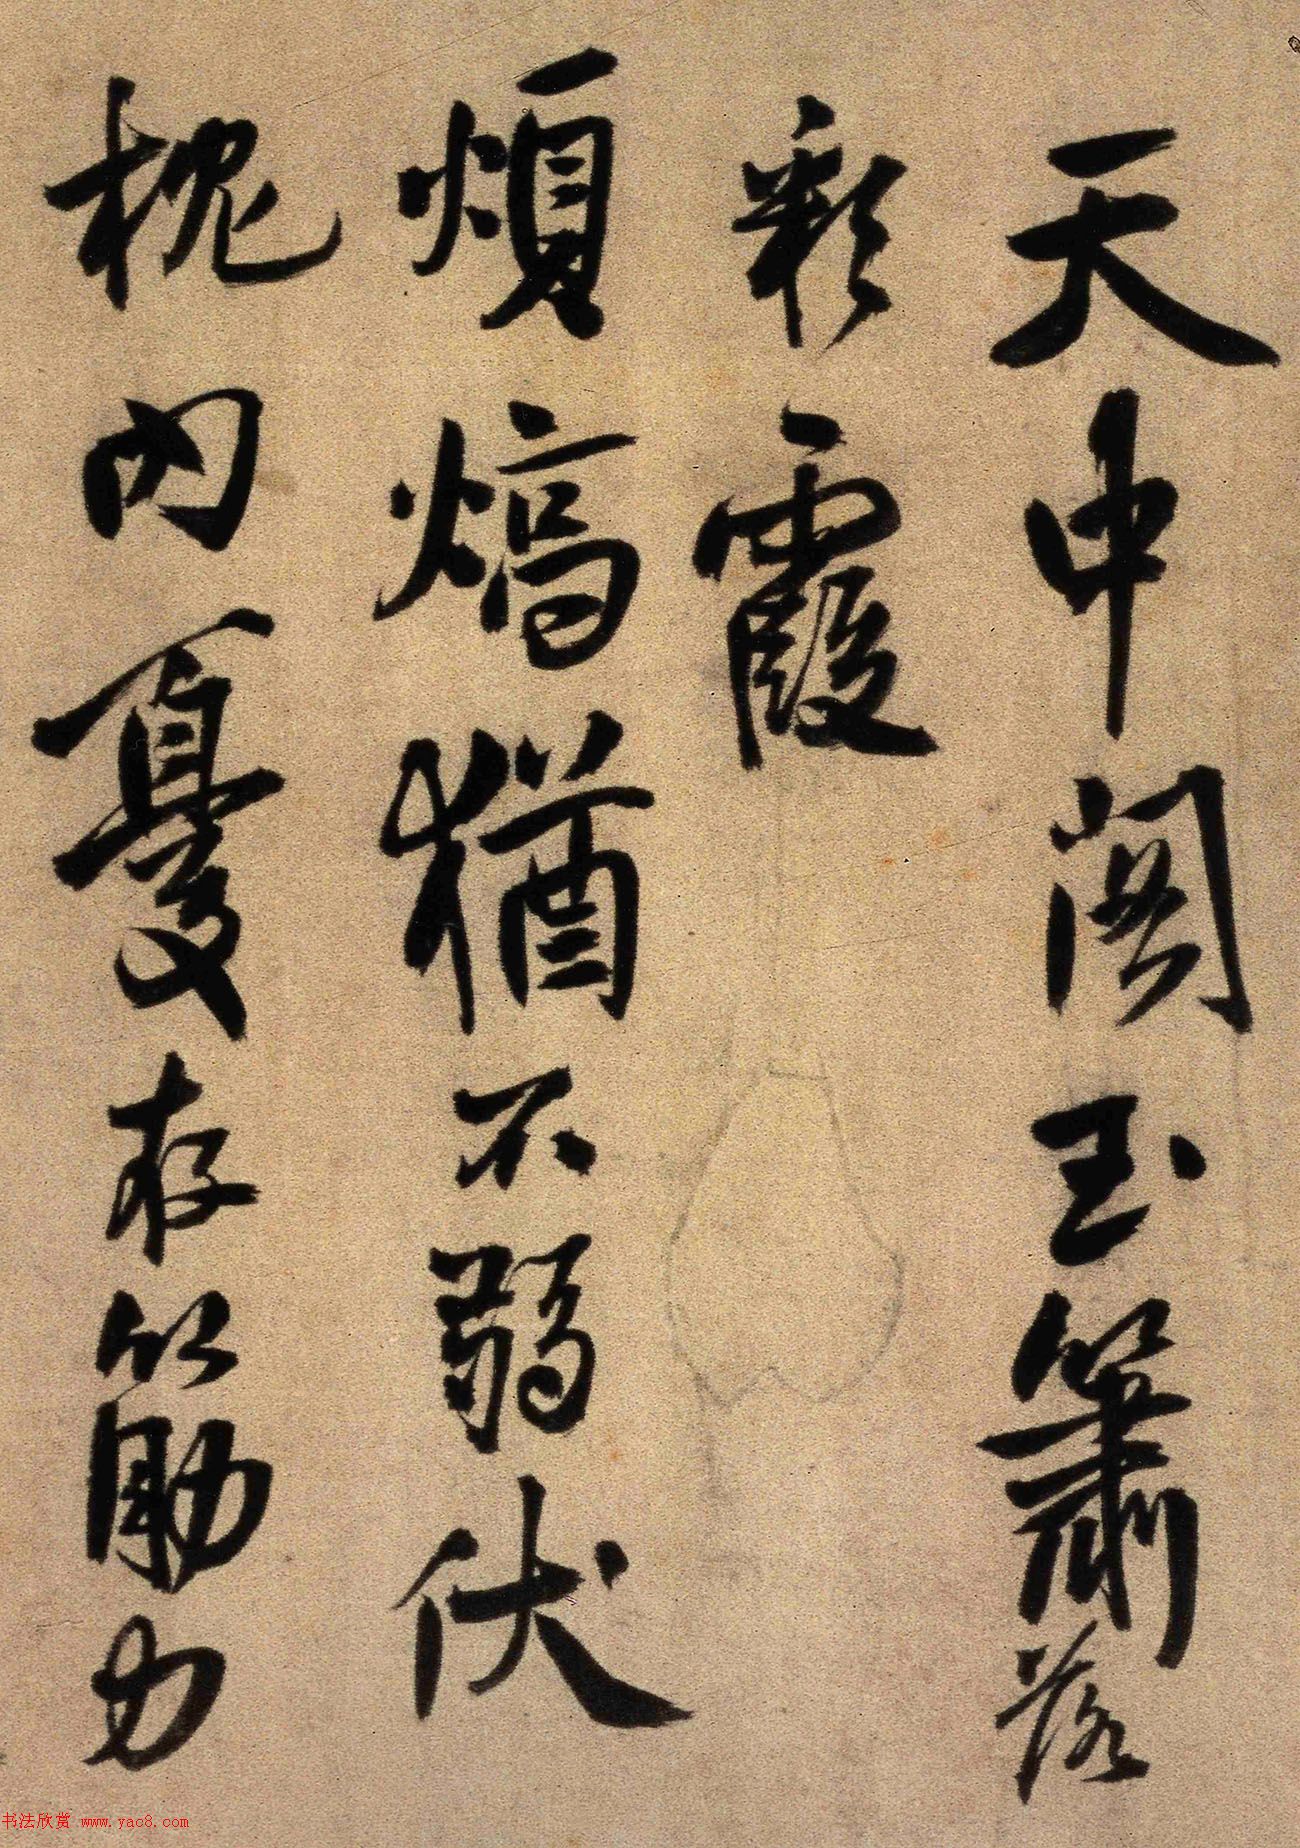 天中闋玉簫落
彩霞
煩熇猶不弱伏
枕内憂存筋力
书法欣赏 www.yac8.com